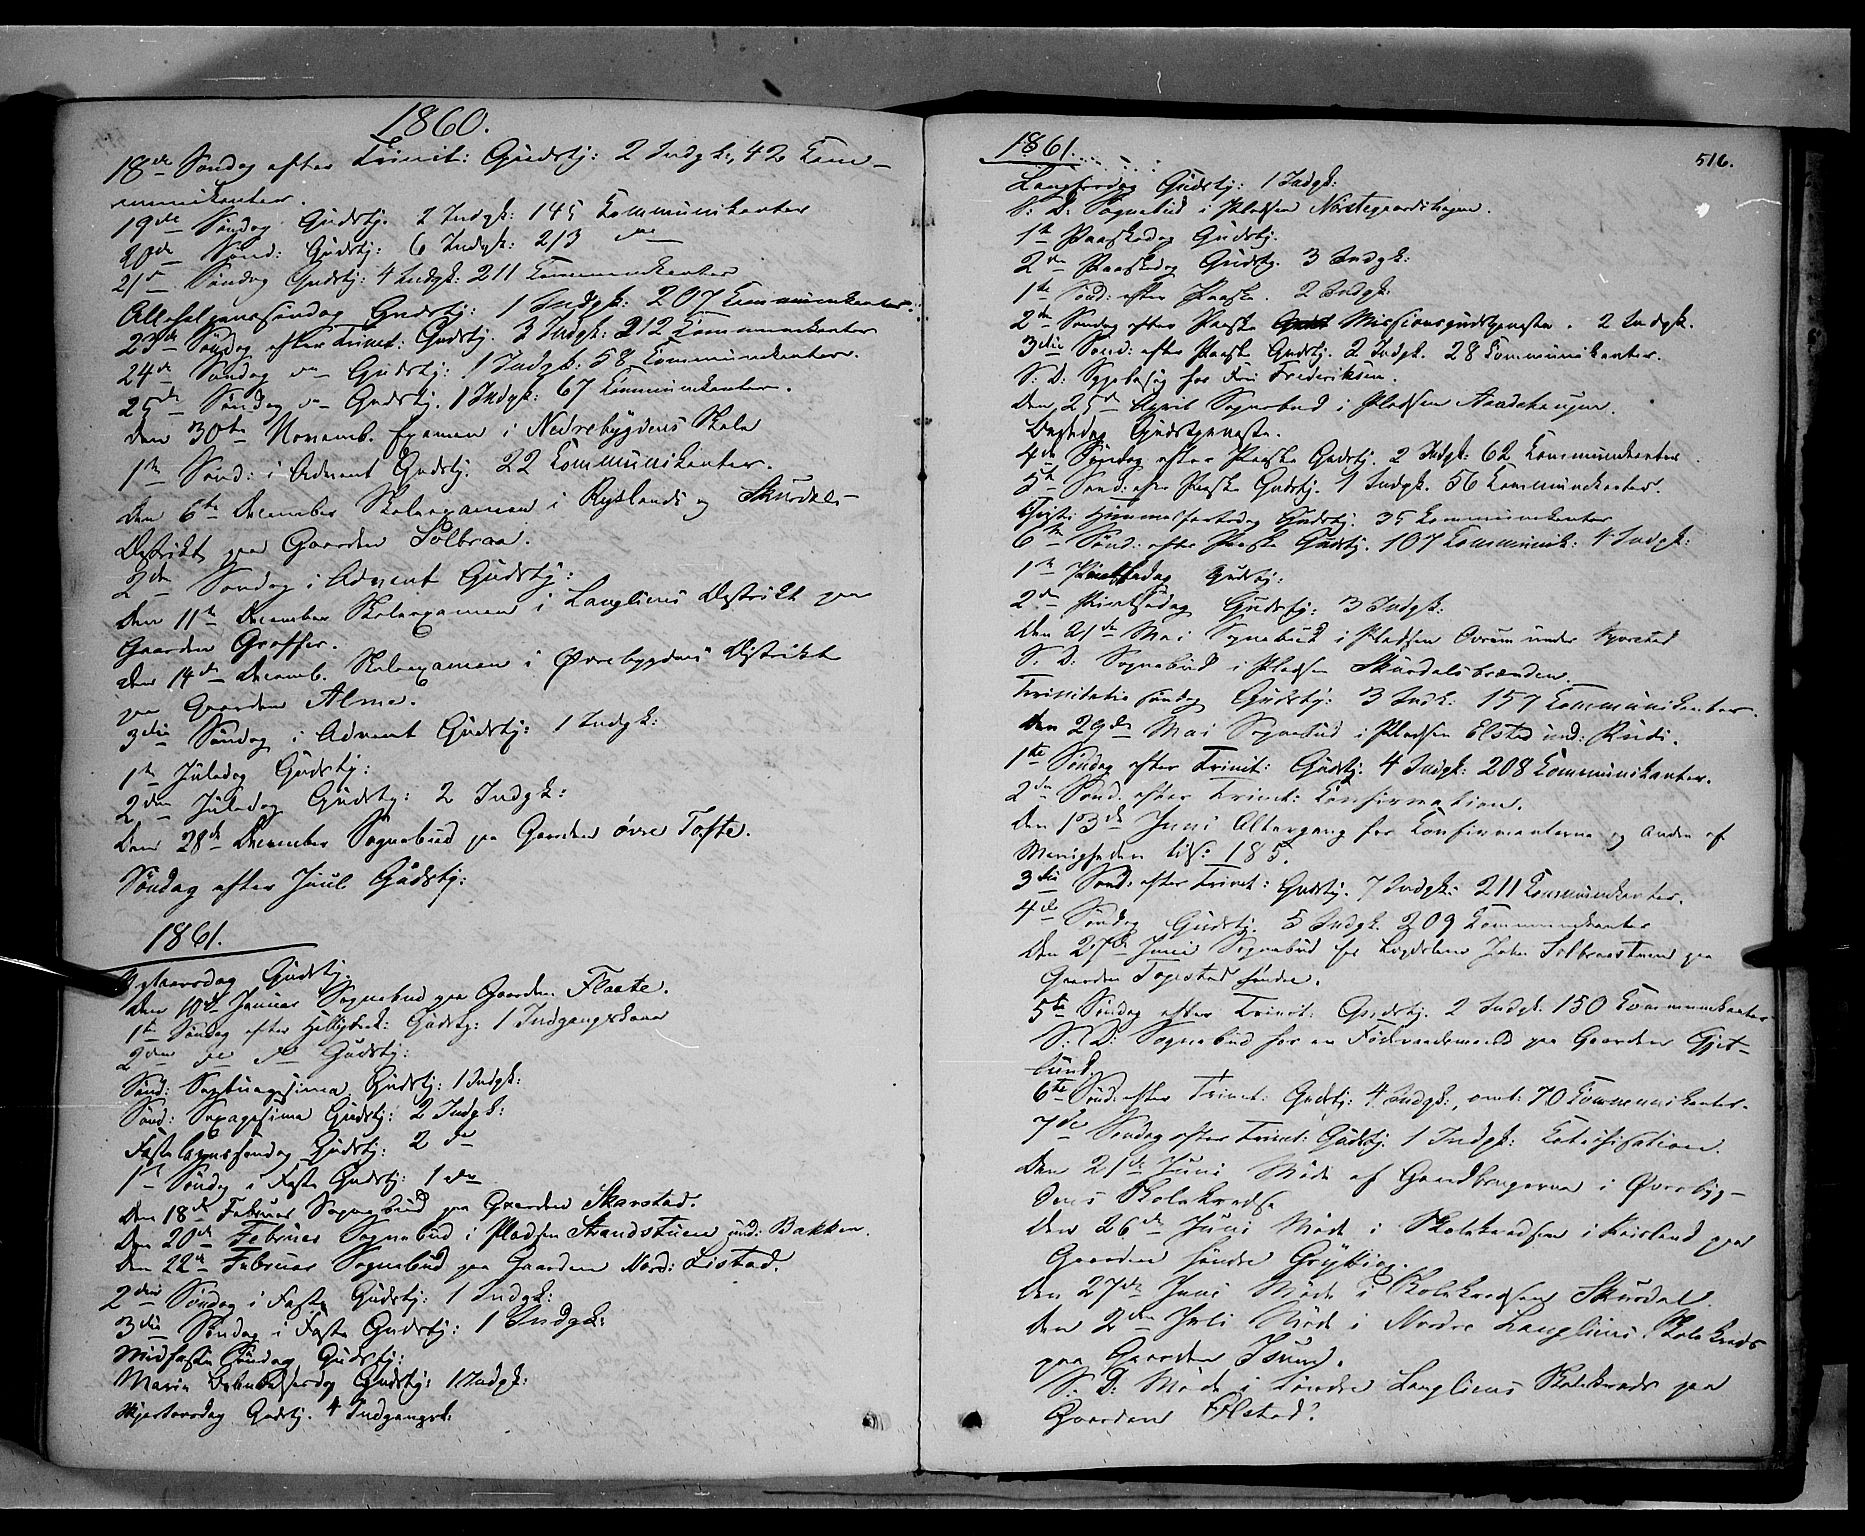 1860.
18de Søndag efter Trinit: Gudstj: 2 Indgk:, 42 Kom-
munikanter.
19de Søndag Gudstj. 2 Indgk: 145 Kommunikanter
20de Sønd: Gudstj: 6 Indgk: 213 do
21de Søndag Gudstj: 4 Indgk: 211 Kommunikanter
Allehelgenssøndag Gudstj: 1 Indgk: 207 Kommunikanter.
23de Søndag efter Trinit: Gudstj. 3 Indgk: 212 Kommunikanter
24de Søndag do Gudstj: 1 Indgk: 58 Kommunikanter.
25de Søndag do Gudstj. 1 Indgk: 67 Kommunikanter.
den 30te Novemb. Examen i Nedrebygdens Skole
1te Sønd: i Advent Gudstj. 22 Kommunikanter.
den 6te December Skoleexamen i Ryslands og Skurdals-
Distrikt paa Gaarden Solbraa.
2den Søndag i Advent Gudstj:
den 11te December Skoleexamen i Langliens Distrikt paa
Gaarden Graffer.
den 14de Decemb. Skoleexamen i Øvrebygdens Distrikt
paa Gaarden Alme.
3die Søndag i Advent Gudstj: 1 Indgk:
1te Juledag Gudstj:
2den Juledag Gudstj: 2 Indgk:
Den 28de December Sognebud paa Gaarden øvre Tofte.
Søndag efter Juul Gudstj:
1861.
Nytaarsdag Gudstj.
den 10de Januar Sognebud paa Gaarden Flaate.
1te Søndag efter Helligtrek: Gudstj: 1 Indgangskone
2den do do Gudstj:
Sønd: Septuagesima Gudstj: 1 Indgk:
Sønd: Sexagesima Gudstj: 2 Indgk:
Fastelavnssøndag Gudstj: 2 do
1te Søndag i Faste Gudstj: 1 do
den 18de Februar Sognebud paa Gaarden Skarstad.
den 20de Februar Sognebud i Pladsen Strandstuen und: Bakken.
den 22de Februar Sognebud paa Gaarden Nord: Listad.
2den Søndag i Faste Gudstj: 1 Indgk:
3die Søndag i Faste Gudstj: 1 Indgk:
Midfaste Søndag Gudstj:
Maria Bebudelsesdag Gudstj: 1 Indgk:
Skjertorsdag Gudstj. 4 Indgangsk:
1861.
516.
Langfredag Gudstj: 1 Indgk:
S: D: Sognebud i Pladsen Norstegaardshagen.
1te Paaskedag Gudstj.
2den Paaskedag Gudstj. 3 Indgk:
1te Sønd: efter Paaske. 2 Indgk:
2den Søndag efter Paaske Missionsgudstjeneste. 2 Indgk.
3die Sønd: efter Paaske Gudstj. 2 Indgk. 28 Kommunikanter.
S: D: Sygebesøg hos Fru Frederiksen.
den 25de April Sognebud i Pladsen
Bededag Gudstjeneste.
4de Søndag efter Paaske Gudstj. 2 Indgk: 62 Kommunikanter.
5te Sønd: efter Paaske Gudstj. 1 Indgk. 56 Kommunikanter.
Christi Himmelfartsdag Gudstj. 35 Kommunikanter
6te Sønd: efter Paaske Gudstj. 107 Kommunik: 4 Indgk:
1te Pintsedag Gudstj:
2den Pintsedag Gudstj: 3 Indgk:
den 21de Mai Sognebud i Pladsen under
S: D: Sognebud i Pladsen Skurdalsbrænden.
Trinitatis søndag Gudstj: 3 Indk: 157 Kommunikanter.
den 29de Mai Sognebud i Pladsen Elstad und: Rudi.
1te Søndag efter Trinit: Gudstj: 4 Indgk: 208 Kommunikanter.
2den Sønd. efter Trinit: Konfirmation.
den 13de Juni Altergang for Konfirmanterne og Andre af
Menigheden tils: 185.
3die Sønd: efter Trinit: Gudstj. 7 Indgk: 211 Kommunikanter.
4de Søndag Gudstj. 5 Indgk. 209 Kommunikanter
den 27de Juni Sognebud for John Solbraastuen paa
Gaarden Togstad søndre.
5te Søndag efter Trinit: Gudstj. 2 Indgk. 150 Kommunikanter
S: D: Sognebud for en Føderaadsmand paa Gaarden Gjet-
lund.
6te Sønd: efter Trinit: Gudstj: 4 Indgk:, omt: 70 Kommunikanter.
7de Søndag efter Trinit: Gudstj. 1 Indgk: Katechisation.
den 21de Juni Møde af Gaardbrugerne i Øvrebyg-
dens Skolekreds
den 26de Juni Møde i Skolekredsen i Ruisland paa
Gaarden søndre Gryttig.
den 27de Juni Møde i Skolekredsen Skurdal.
den 2den Juli Møde i Nordre Langliens Skolekreds
paa Gaarden Isum.
S: D: Møde i Søndre Langliens Skolekreds paa
Gaarden Ølstad.